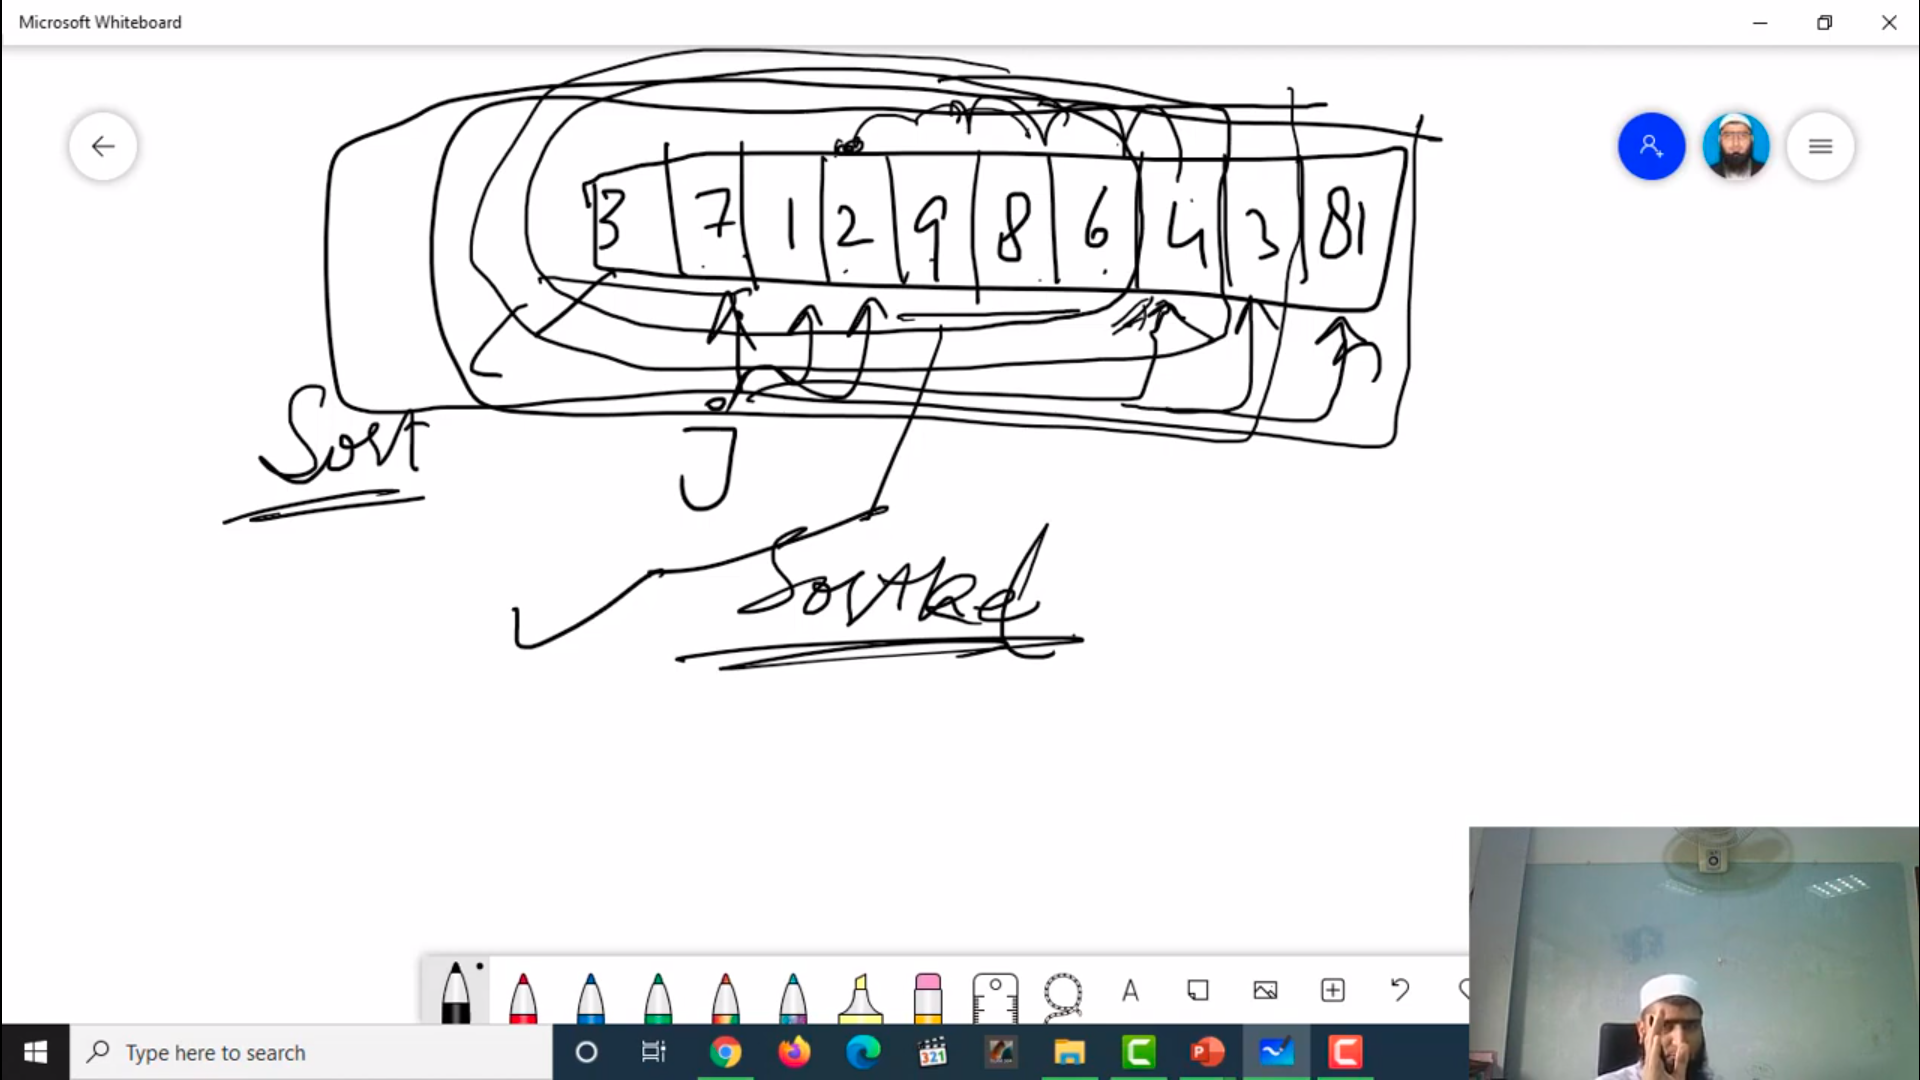 Microsoft Whiteboard
3 7 1 2 9 8 6 4 3 81
Sort
J
Sorted
A
Type here to search
321